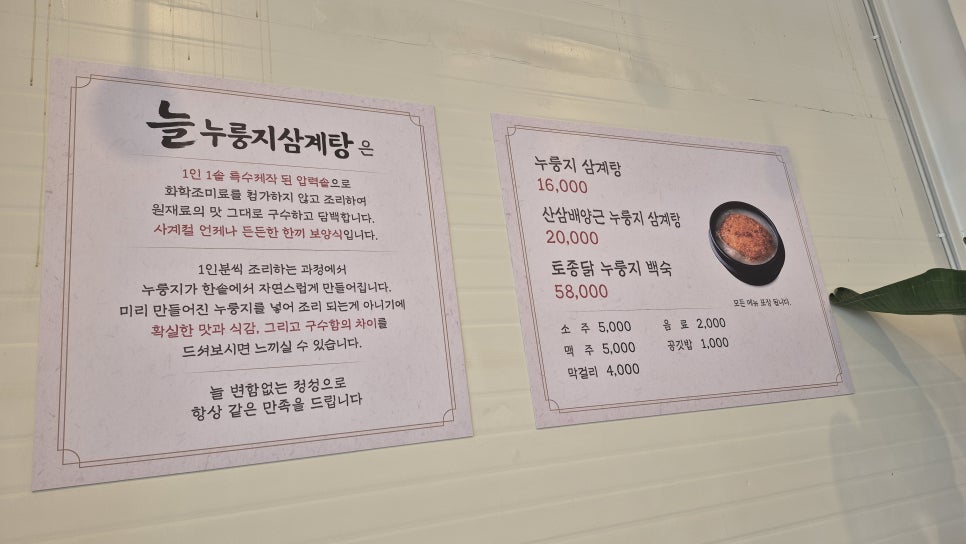 늘 누룽지삼계탕 은
1인 1솥 특수제작 된 압력솥으로
화학조미료를 첨가하지 않고 조리하여
원재료의 맛 그대로 구수하고 담백합니다.
사계절 언제나 든든한 한끼 보양식입니다.
1인분씩 조리하는 과정에서
누룽지가 한솥에서 자연스럽게 만들어집니다.
미리 만들어진 누룽지를 넣어 조리 되는게 아니기에
확실한 맛과 식감, 그리고 구수함의 차이를
드셔보시면 느끼실 수 있습니다.
늘 변함없는 정성으로
항상 같은 만족을 드립니다
누룽지 삼계탕
16,000
산삼배양근 누룽지 삼계탕
20,000
토종닭 누룽지 백숙
58,000
모든 메뉴 포장 됩니다.
소 주 5,000 음 료 2,000
맥 주 5,000 공깃밥 1,000
막걸리 4,000